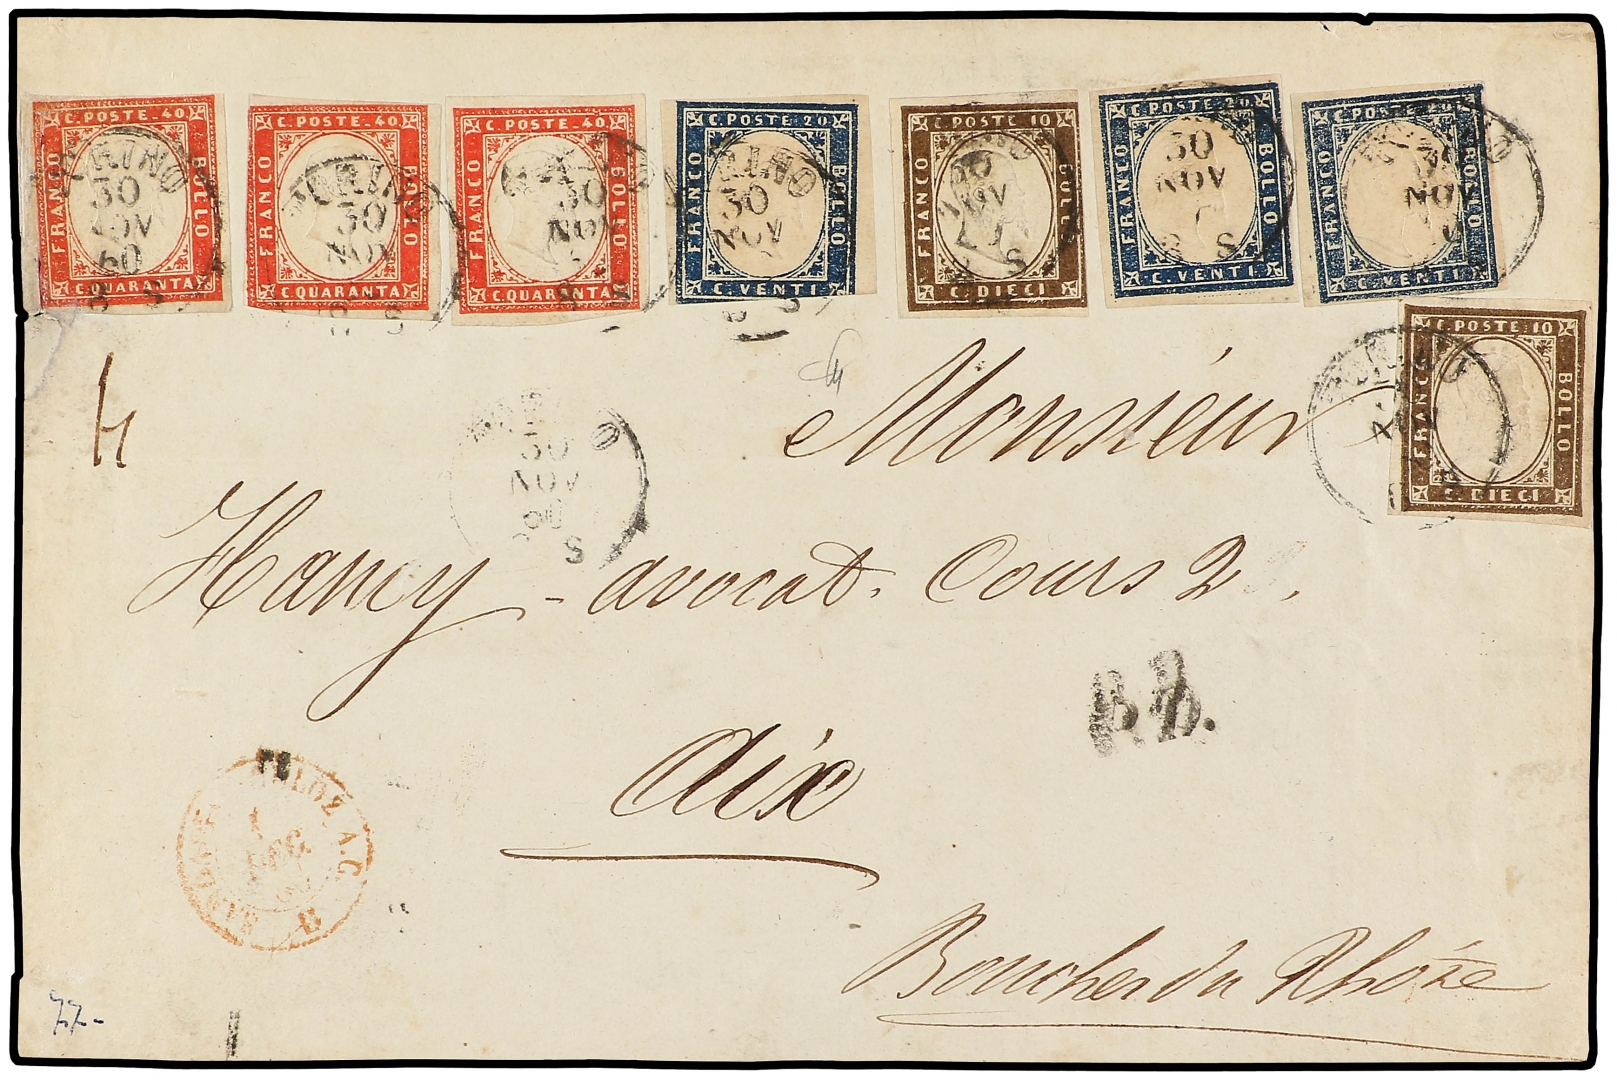 C. POSTE. 40
FRANCO
BOLLO
C. QUARANTA
TORINO
30
NOV
60
8 S
C. POSTE. 40
FRANCO
BOLLO
C. QUARANTA
TORINO
30
NOV
S
C. POSTE. 40
FRANCO
BOLLO
C. QUARANTA
30
NOV
C. POSTE 20
FRANCO
BOLLO
C. VENTI
TORINO
30
NOV
S
C POSTE 10
FRANCO
BOLLO
C. DIECI
NOV
S
C. POSTE. 20
FRANCO
BOLLO
C. VENTI
30
NOV
S
C. POSTE 20
FRANCO
BOLLO
C. VENTI
30
NOV
C. POSTE 10
FRANCO
BOLLO
C. DIECI
4
Monsieur
30
NOV
60
S
Hancy - avocat. Cours 2
P.D.
Aix
A.C.
B
Bouches du Rhône
77-